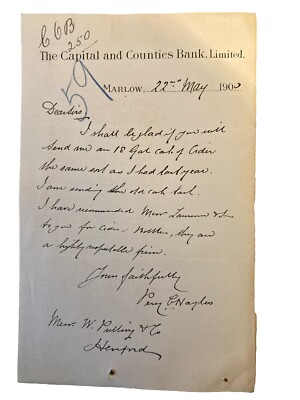 C C B
250
59
The Capital and Counties Bank, Limited.
Marlow, 22nd May 190
Dear Sirs
I shall be glad if you will
send me an 18 Gal cask of Cider
the same sort as I had last year.
I am sending the old cask back.
I have recommended Messrs Laurence &
to you for cider - bottles, they are
a highly reputable firm.
Yours faithfully
Percy C Hayles
Messrs W. Pulling & Co
Hereford